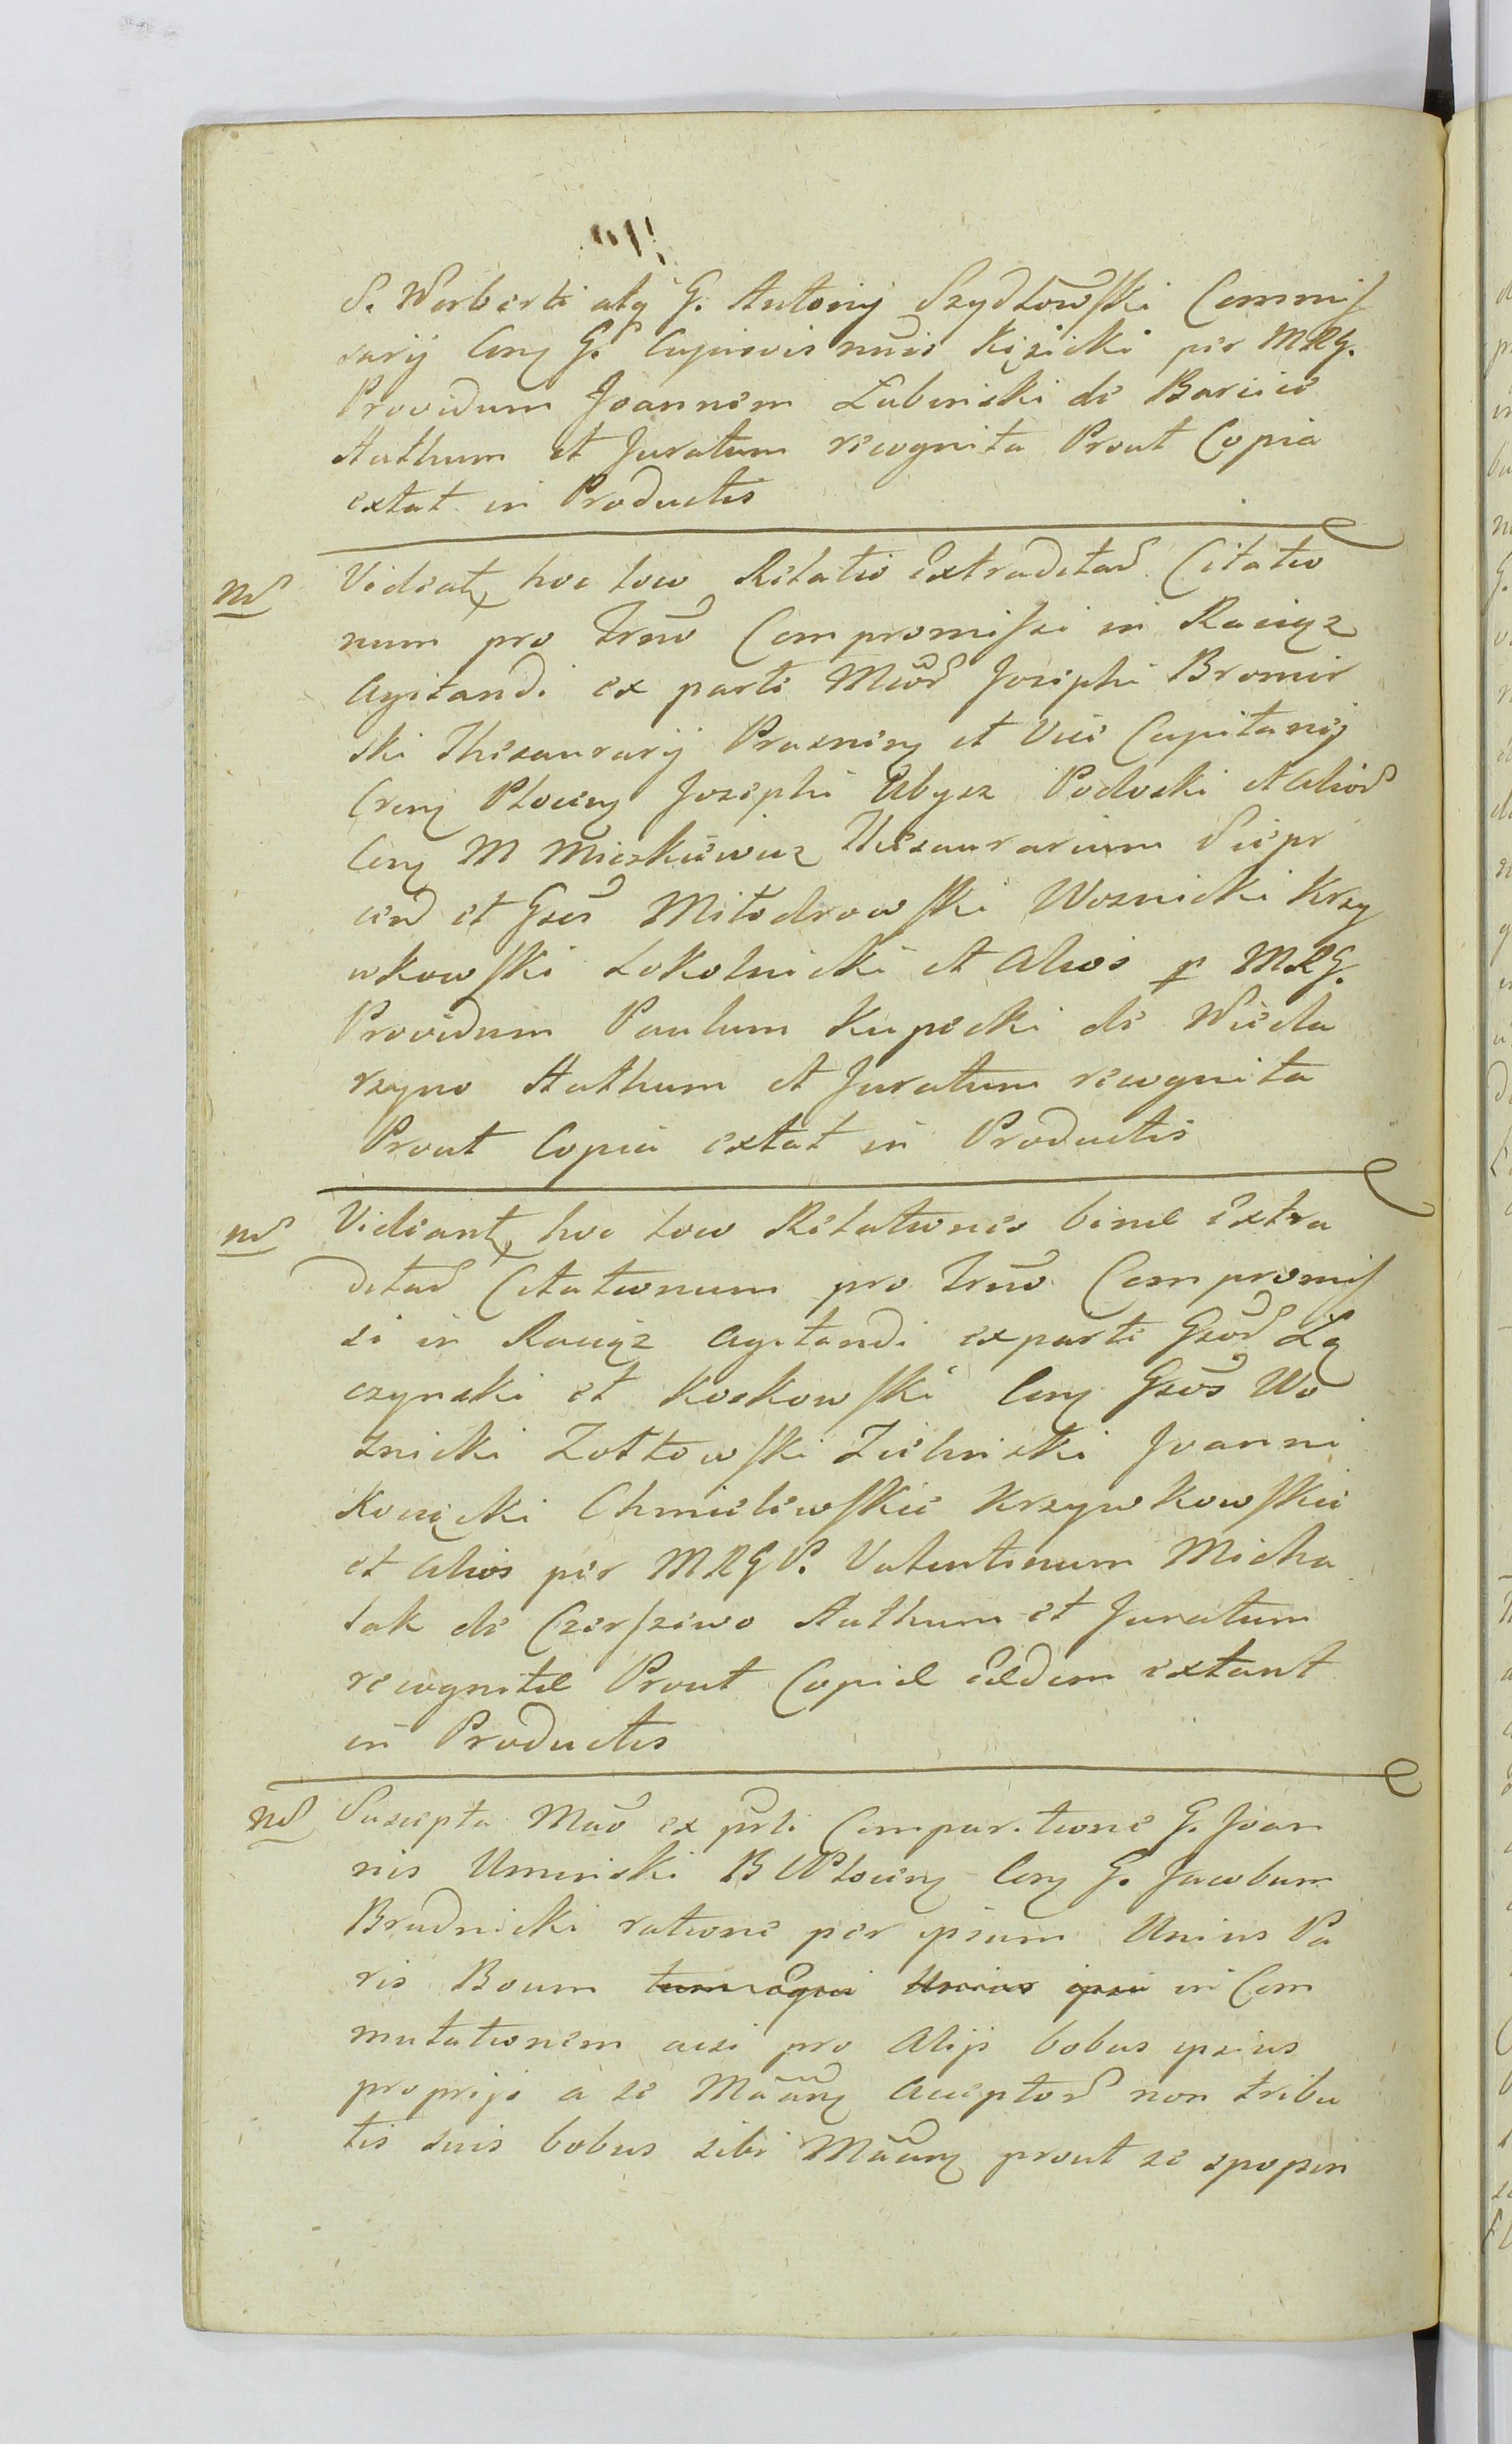 S. Norberti atq G. Antonij Szydłowski Commis
sarij Cong G. Cupiovis nuis Kizicki per MRG.
Providum Joannem Lubinski de Barcice
Authum et Juratum recognita Prout Copia
extat in Productis
Nd Videat hoc loco Relatio Extraditar Citatio
num pro Trno Compromissi in Raciąz
agitandi ex parte Mcor Josephi Bromir
ski Thesaurarij Prasneng et Vice Capitanij
Creng Ploceng Josephi Abysz Podoski et Alior
Cong M Mieszkiewicz Thesaurarium Sierp
cen et Gsos Miłodrowski Woznicki Krzy
wkowski Sokolnicki et Alios p MRG.
Providum Paulum Kupecki de Nieda
rzyno Authum et Juratum recognita
Prout Copia extat in Productis
Nd Videant hoc loco Relationes binæ Extra
ditar Citationum pro Trno Compromis
si in Raciąz agitandi ex parte Gsor Łą
czynski et Koskowski Cong Gsos Wo
znicki Zołtowski Zielinski Joanni
Kocięcki Chmieliewskie Krzywkowskie
et alios per MRG P. Valentinum Micha
lak de Czerszewo Authum et Juratum
recognitæ Prout Copiæ eædem extant
in Productis
Nd Suscepta Mnō ex prti Comparitione G. Joan
nis Uminski B U Płoceng Cong G. Jacobum
Brudnicki ratione per ipsum Unius Pa
ris Boum tum equi Unius ipsi in Com
mutationem acsi pro Alijs bobus ipsius
proprijs a se Mãng acceptor non tribu
tis suis bobus sibi Mãng prout se spopon